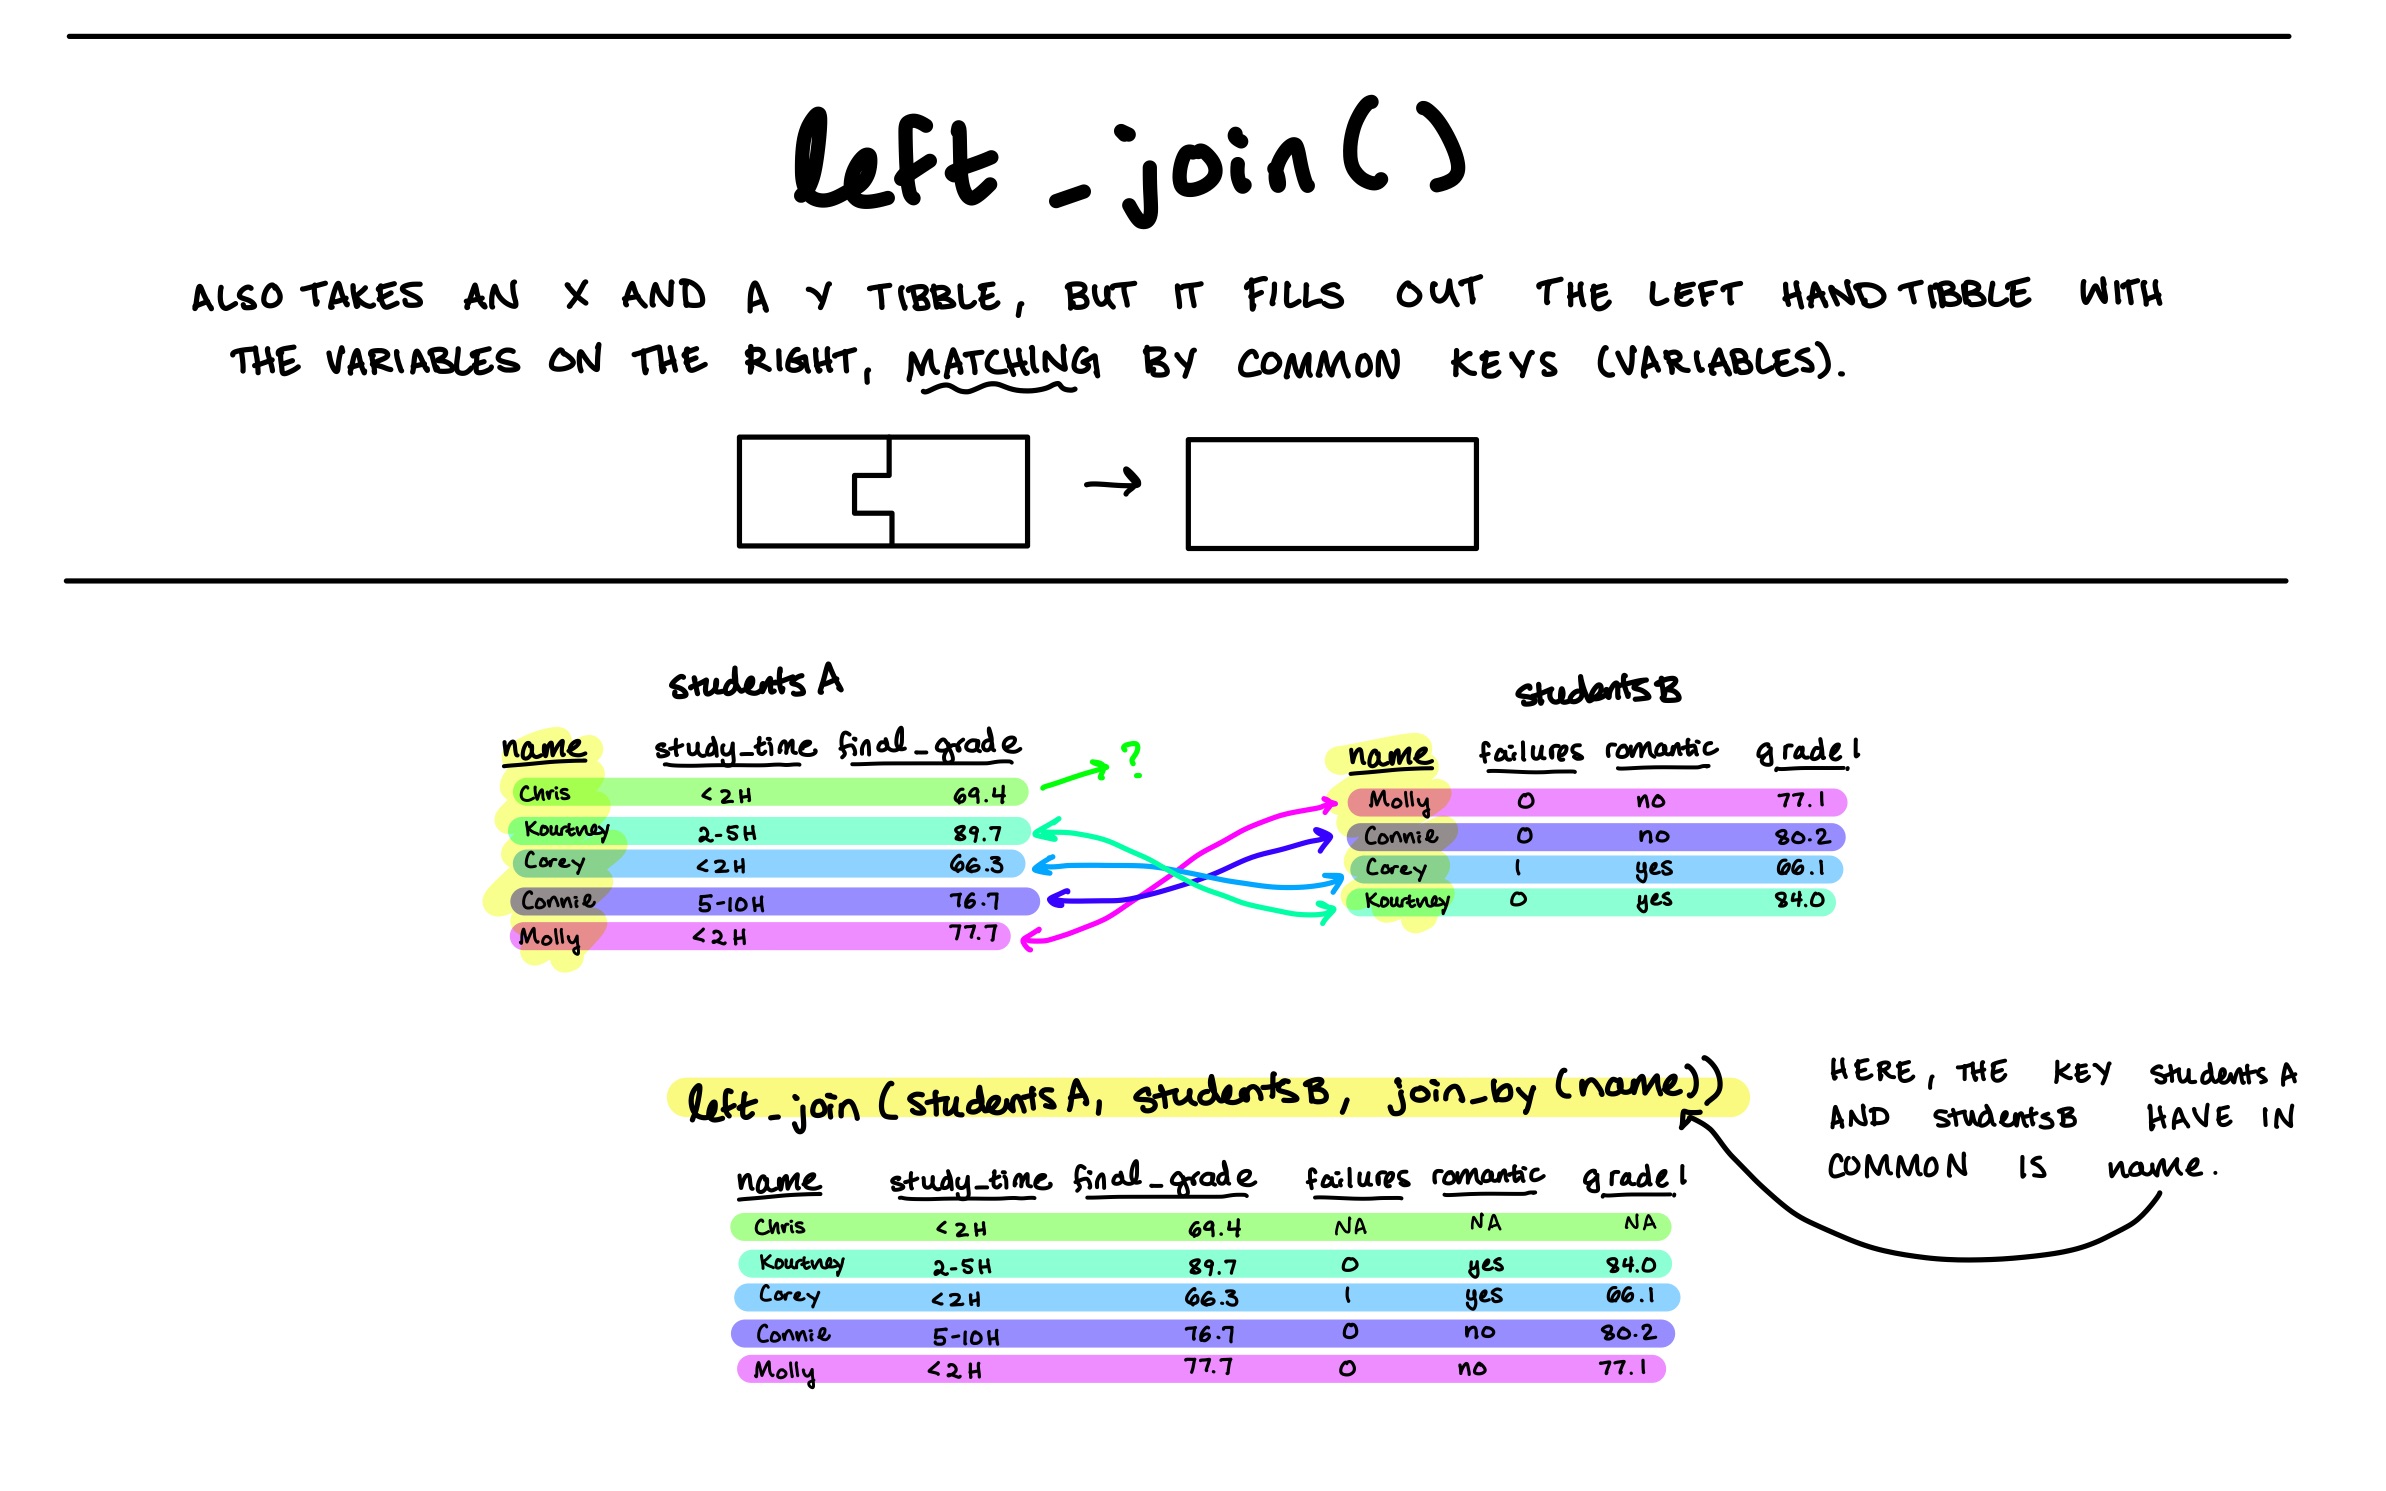 left_join()
ALSO TAKES AN X AND A Y TIBBLE, BUT IT FILLS OUT THE LEFT HAND TIBBLE WITH
THE VARIABLES ON THE RIGHT, MATCHING BY COMMON KEYS (VARIABLES).
studentsA
name study_time final_grade
Chris <2H 69.4
Kourtney 2-5H 89.7
Corey <2H 66.3
Connie 5-10H 76.7
Molly <2H 77.7
?
studentsB
name failures romantic grade1
Molly 0 no 77.1
Connie 0 no 80.2
Corey 1 yes 66.1
Kourtney 0 yes 84.0
left_join(studentsA, studentsB, join_by(name))
HERE, THE KEY studentsA
AND studentsB HAVE IN
COMMON IS name.
name study_time final_grade failures romantic grade1
Chris <2H 69.4 NA NA NA
Kourtney 2-5H 89.7 0 yes 84.0
Corey <2H 66.3 1 yes 66.1
Connie 5-10H 76.7 0 no 80.2
Molly <2H 77.7 0 no 77.1